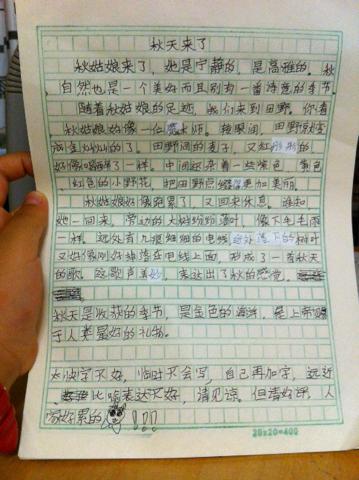 秋天来了
秋姑娘来了，她是宁静的，是高雅的。秋
自然也是一个美好而且别有一番诗意的季节。
随着秋姑娘的足迹，我们来到田野。你看
秋姑娘好像一位魔术师。转眼间，田野就变
的了。田野间的麦子，又红彤彤的
好像喝醉了一样。中间还夹着一些紫色，黄色
红色的小野花，把田野点缀得更加美丽。
秋姑娘好像疲累了，又回来休息。谁知
她一回来，旁边的大树纷纷落叶，像下毛毛雨
一样。远处有几根细细的电线，这落下的树叶
又好像刚好掉落在电线上面，形成了一首秋天
的歌。这歌声美妙，表达出了秋的感觉。
秋天是收获的季节，是金色的海洋，是上帝赐
于人类最好的礼物。
快字不好，临时不会写，自己再加字，远近
比喻表达不好，请见谅。但请好评，人
家好累的!!!
20x20=400